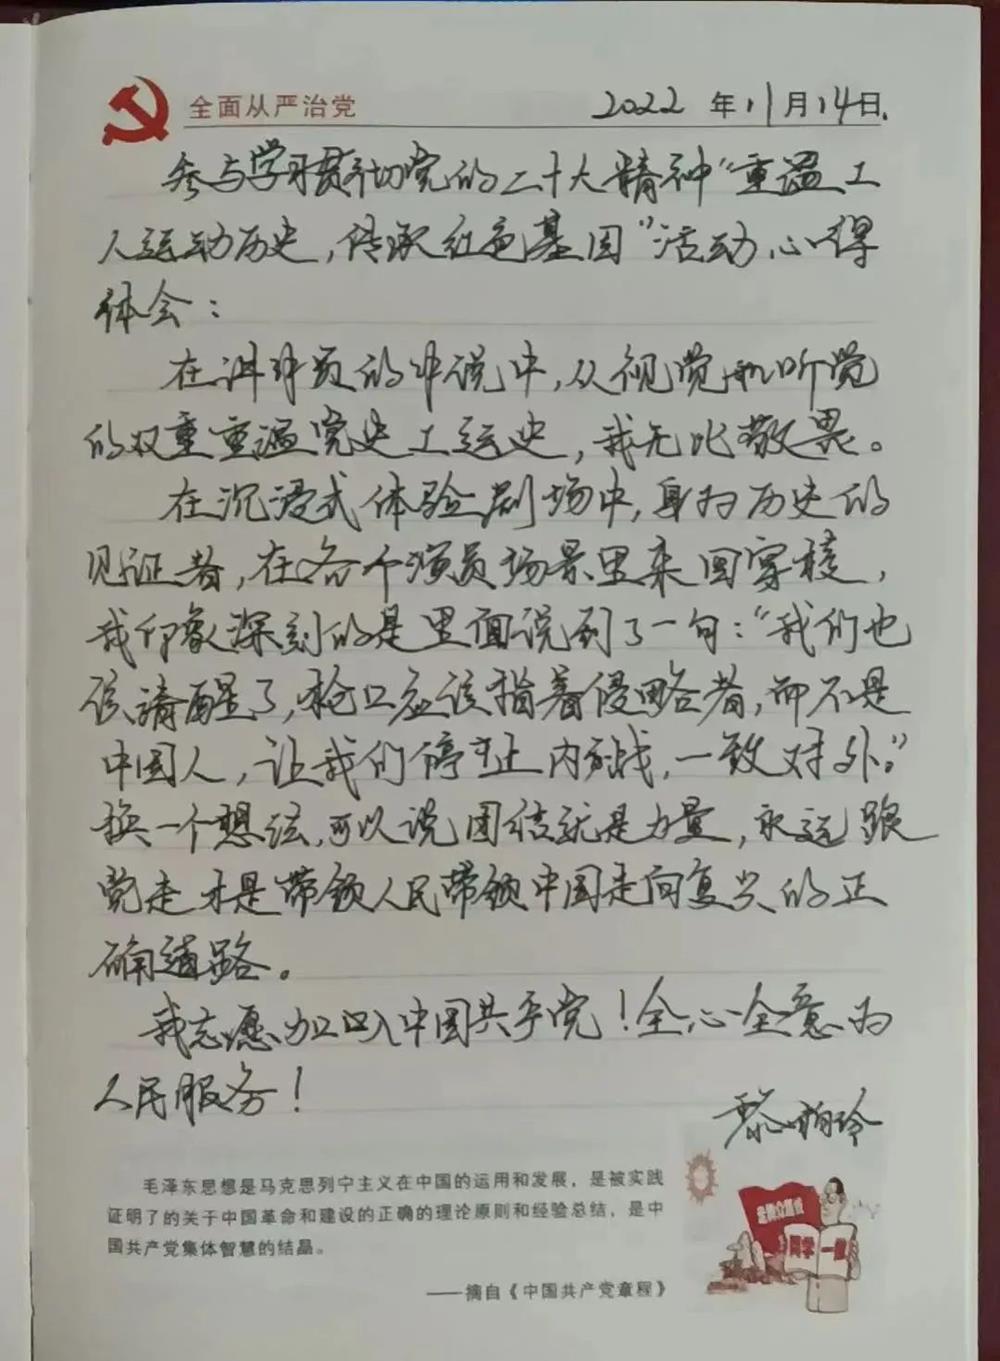 全面从严治党
2022 年 11月 14日.
参与学习贯彻党的二十大精神“重温工
人运动历史，传承红色基因”活动，心得
体会：
在讲解员的解说中，从视觉和听觉
的双重重温党史工运史，我无比敬畏。
在沉浸式体验剧场中，身为历史的
见证者，在各个演员场景里来回穿梭，
我印象深刻的是里面说到了一句：“我们也
该清醒了，枪口应该指着侵略者，而不是
中国人，让我们停止内战，一致对外。”
换一个想法，可以说团结就是力量，永远跟
党走才是带领人民带领中国走向复兴的正
确道路。
我志愿加入中国共产党！全心全意为
人民服务！
黎柳玲
毛泽东思想是马克思列宁主义在中国的运用和发展，是被实践
证明了的关于中国革命和建设的正确的理论原则和经验总结，是中
国共产党集体智慧的结晶。
——摘自《中国共产党章程》
同学一